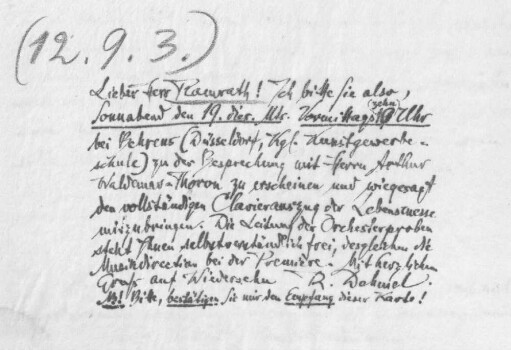 (12.9.3.)
Lieber Herr Kamrath! Ich bitte Sie also,
Sonnabend den 19. dies. Mts. Vormittags 10 (zehn) Uhr
bei Behrens (Düsseldorf, Kgl. Kunstgewerbe-
schule) zu der Besprechung mit Herrn Arthur
Waldemar-Thoron zu erscheinen und wiegesagt
den vollständigen Clavierauszug der Lebensmesse
mitzubringen. Die Leitung der Orchesterproben
steht Ihnen selbstverständlich frei, desgleichen die
Musikdirection bei der Première. Mit herzlichem
Gruß auf Wiedersehn R. Dehmel.
NB! Bitte, bestätigen Sie mir den Empfang dieser Karte!